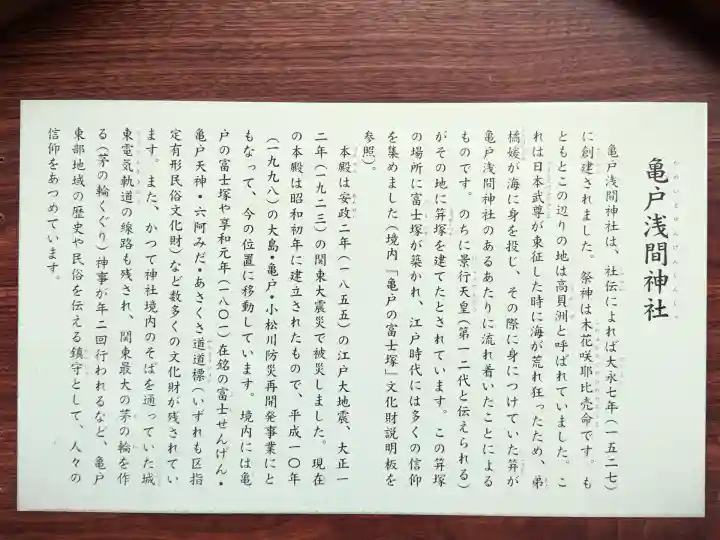 亀戸浅間神社
亀戸浅間神社は、社伝によれば大永七年(一五二七)
に創建されました。祭神は木花咲耶比売命です。も
ともとこの辺りの地は高貝洲と呼ばれていました。こ
れは日本武尊が東征した時に海が荒れ狂ったため、弟
橘媛が海に身を投じ、その際に身につけていた笄が
亀戸浅間神社のあるあたりに流れ着いたことによる
ものです。のちに景行天皇(第一二代と伝えられる)
がその地に笄塚を建てたとされています。この笄塚
の場所に富士塚が築かれ、江戸時代には多くの信仰
を集めました(境内「亀戸の富士塚」文化財説明板を
参照)。
本殿は安政二年(一八五五)の江戸大地震、大正一
二年(一九二三)の関東大震災で被災しました。現在
の本殿は昭和初年に建立されたもので、平成一〇年
(一九九八)の大島・亀戸・小松川防災再開発事業にと
もなって、今の位置に移動しています。境内には亀
戸の富士塚や享和元年(一八〇一)在銘の富士せんげん・
亀戸天神・六阿みだ・あさくさ道道標(いずれも区指
定有形民俗文化財)など数多くの文化財が残されてい
ます。また、かつて神社境内のそばを通っていた城
東電気軌道の線路も残され、関東最大の茅の輪を作
る(茅の輪くぐり)神事が年二回行われるなど、亀戸
東部地域の歴史や民俗を伝える鎮守として、人々の
信仰をあつめています。